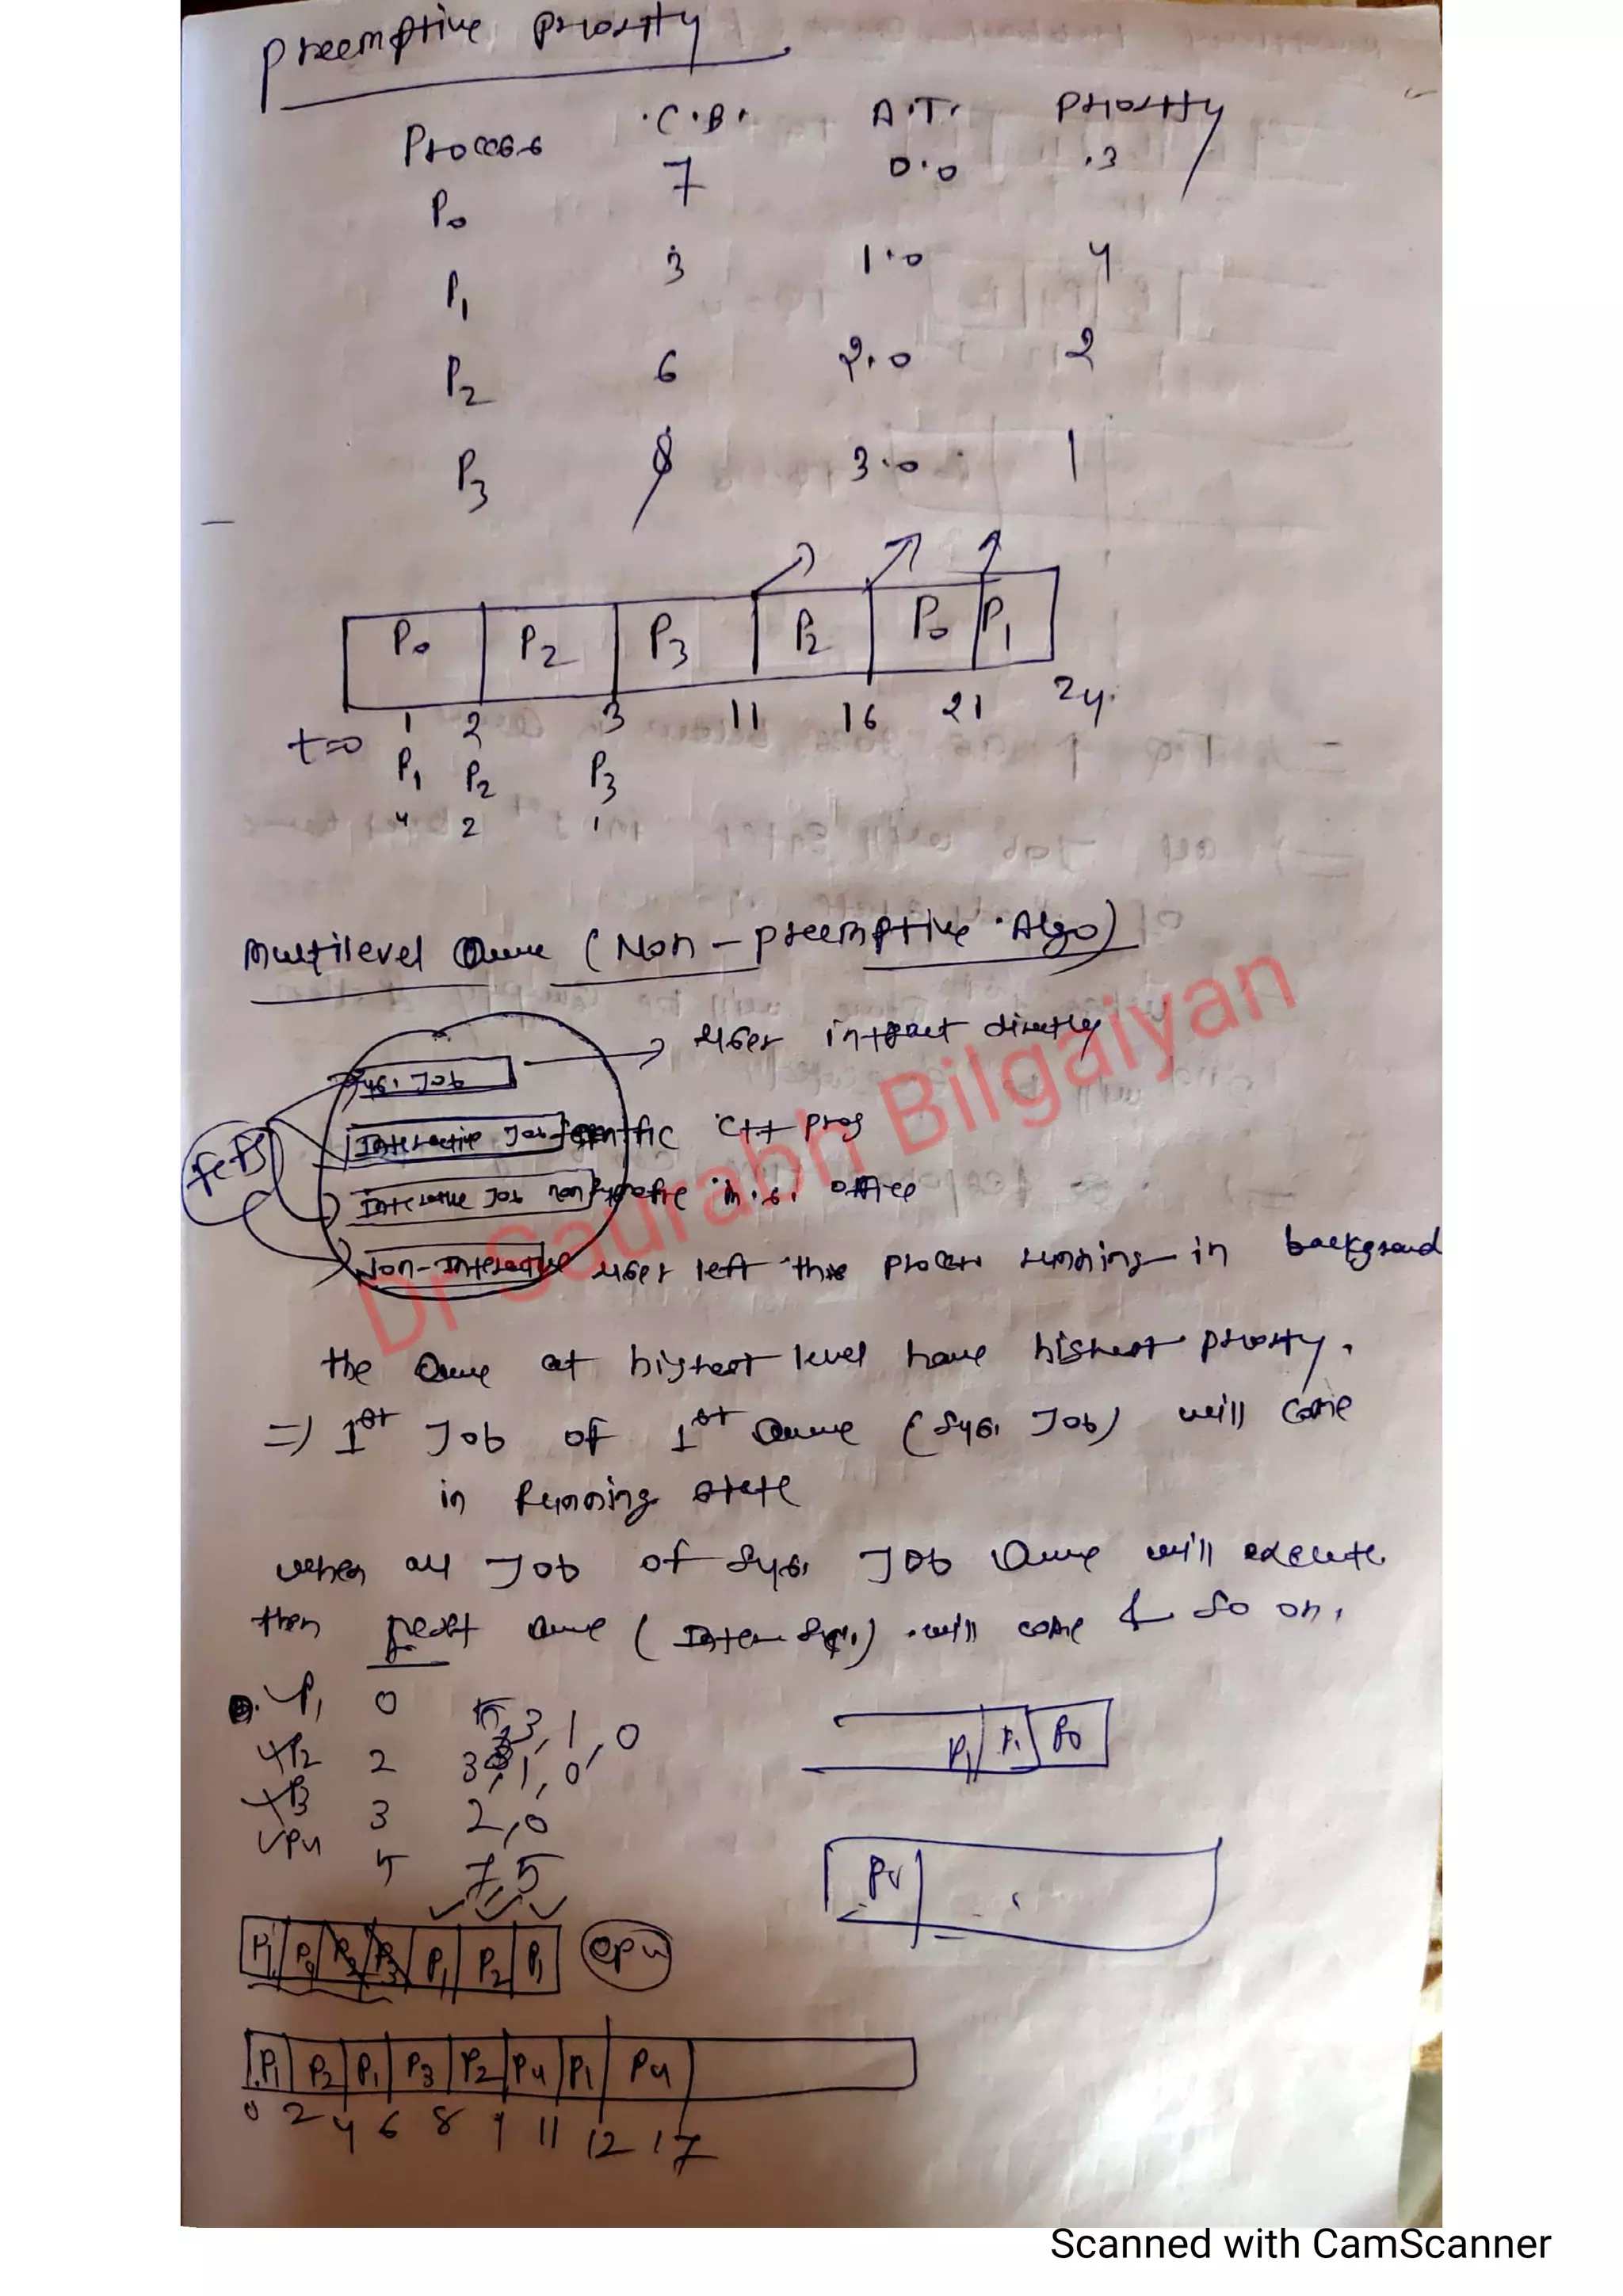 Preemptive Priority
Process C.B. A.T. Priority
P0 7 0.0 3
P1 3 1.0 4
P2 6 2.0 2
P3 8 3.0 1
P0 P2 P3 P2 P0 P1
t=0 1 2 3 11 16 21 24
P1 P2 P3
4 2 1
Multilevel Queue (Non-preemptive Algo)
Sys. Job → User interact directly
Interactive Job C++ prog
Interactive Job non M.S. office
Non-Interactive User left this process running in background
The Queue at highest level have highest priority.
=) 1st Job of 1st Queue (Sys. Job) will come
in Running state
when all Job of Sys. Job Queue will execute
then next Queue ( ) will come & so on.
P1 0 5, 3, 1, 0
P2 2 3, 1, 0
P3 3 2, 0
P4 5 7, 5
P1 P1 P0
P4
P1 P2 P1 CPU
P1 P2 P1 P3 P2 P4 P1 P4
0 2 4 6 8 9 11 12 17
Dr Saurabh Bilgaiyan
Scanned with CamScanner